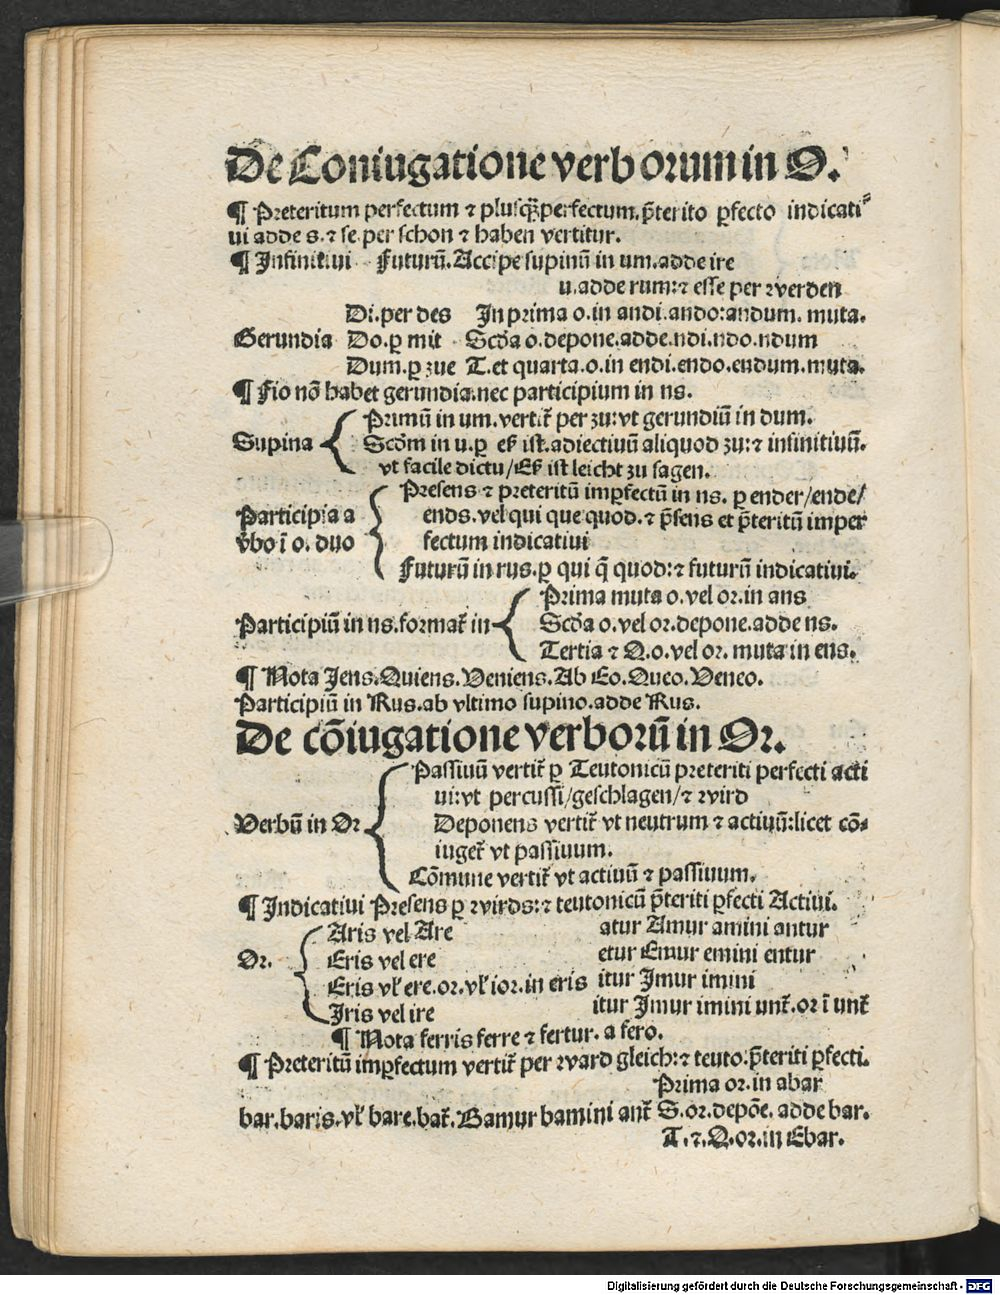 De Coniugatione verborum in O.
¶ Preteritum perfectum ⁊ plusq̃perfectum. p̃terito ꝑfecto indicati⸗
ui adde s. ⁊ se. per schon ⁊ haben vertitur.
¶ Infinit.ui Futurũ. Accipe supinũ in um. adde ire
u. adde rum: ⁊ esse per werden
Di. per des In prima o. in andi. ando: andum. muta.
Gerundia Do. ꝑ mit Scďa o. depone. adde. ndi. ndo. ndum
Dum. ꝑ zue T. et quarta. o. in endi. endo. endum. muta.
¶ Fio nõ habet gerundia. nec participium in ns.
Primũ in um. vertit̃ per zu: vt gerundiũ in dum.
Supina Scďm in u. ꝑ eß ist. adiectiuũ aliquod zu: ⁊ infinitiuũ.
vt facile dictu / Eß ist leicht zu sagen.
Presens ⁊ preteritũ imꝑfectũ in ns. ꝑ ender / ende /
Participia a ends. vel qui que quod. ⁊ p̃sens et p̃teritũ imper
v̾bo ĩ o. duo fectum indicatiui
Futurũ in rus. ꝑ qui q̃ quod: ⁊ futurũ indicatiui.
Prima muta o. vel or. in ans
Participiũ in ns. format̃ in Scďa o. vel or. depone. adde ns.
Tertia ⁊ Q. o. vel or. muta in ens.
¶ Nota Iens. Quiens. Veniens. Ab Eo. Queo. Veneo.
Participiũ in Rus. ab vltimo supino. adde Rus.
De cõiugatione verborũ in Or.
Passiuũ vertit̃ ꝑ Teutonicũ preteriti perfecti acti
ui: vt percussi / geschlagen / ⁊ wird
Verbũ in Or Deponens vertit̃ vt neutrum ⁊ actiuũ: licet cõ⸗
iuget̃ vt passiuum.
Cõmune vertit̃ vt actiuũ ⁊ passiuum.
¶ Indicatiui Presens ꝑ wirds: ⁊ teutonicũ p̃teriti ꝑfecti Actiui.
Aris vel Are atur Amur amini antur
Or. Eris vel ere etur Emur emini entur
Eris vl̾ ere. or. vl̾ ior. in eris itur Imur imini
Iris vel ire itur Imur imini unt̃. or ĩ unt̃
¶ Nota ferris ferre ⁊ fertur. a fero.
¶ Preteritũ imꝑfectum vertit̃ per ward gleich: ⁊ teuto: p̃teriti ꝑfecti.
Prima or. in abar
bar. baris. vl̾ bare. bat̃. Bamur bamini ant̃ S. or. depõe. adde bar.
T. ⁊. Q. or. in Ebar.
Digitalisierung gefördert durch die Deutsche Forschungsgemeinschaft - DFG